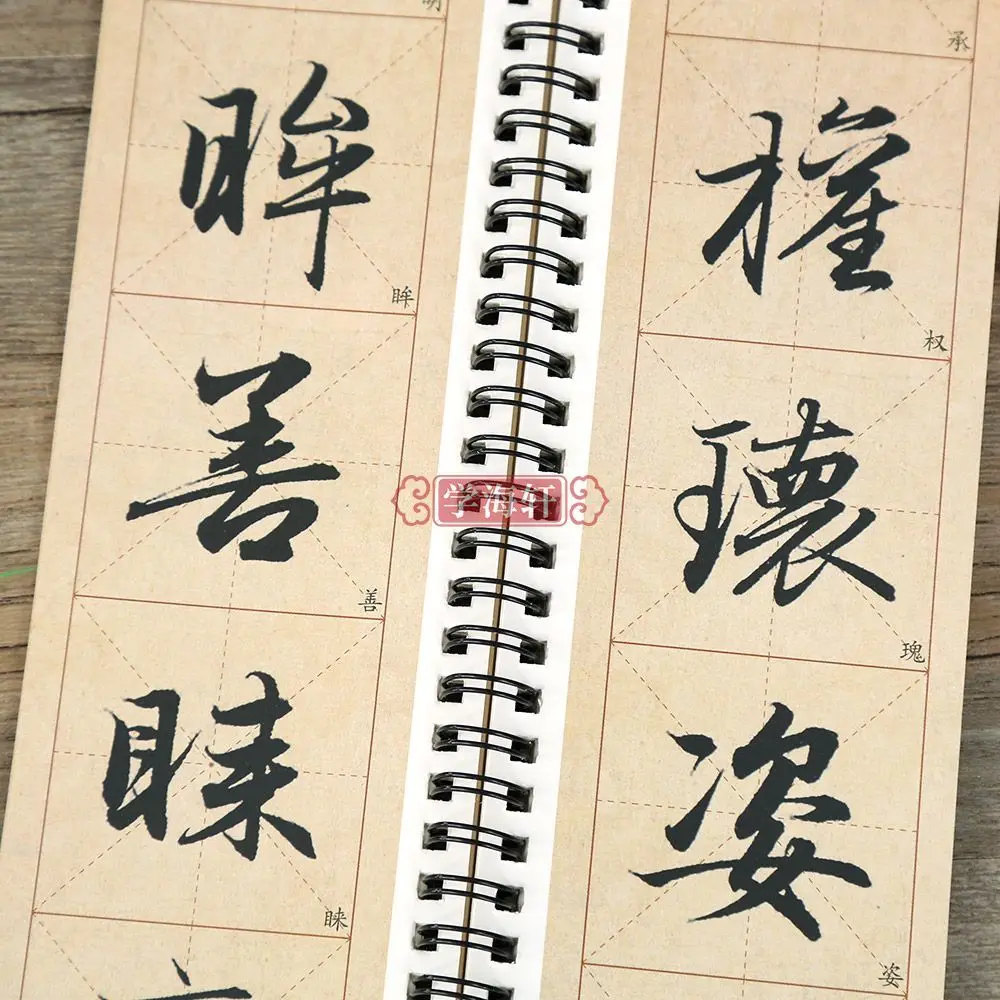 明
眸
眸
善
善
睐
睐
学海轩
承
權
权
瓌
瑰
姿
姿